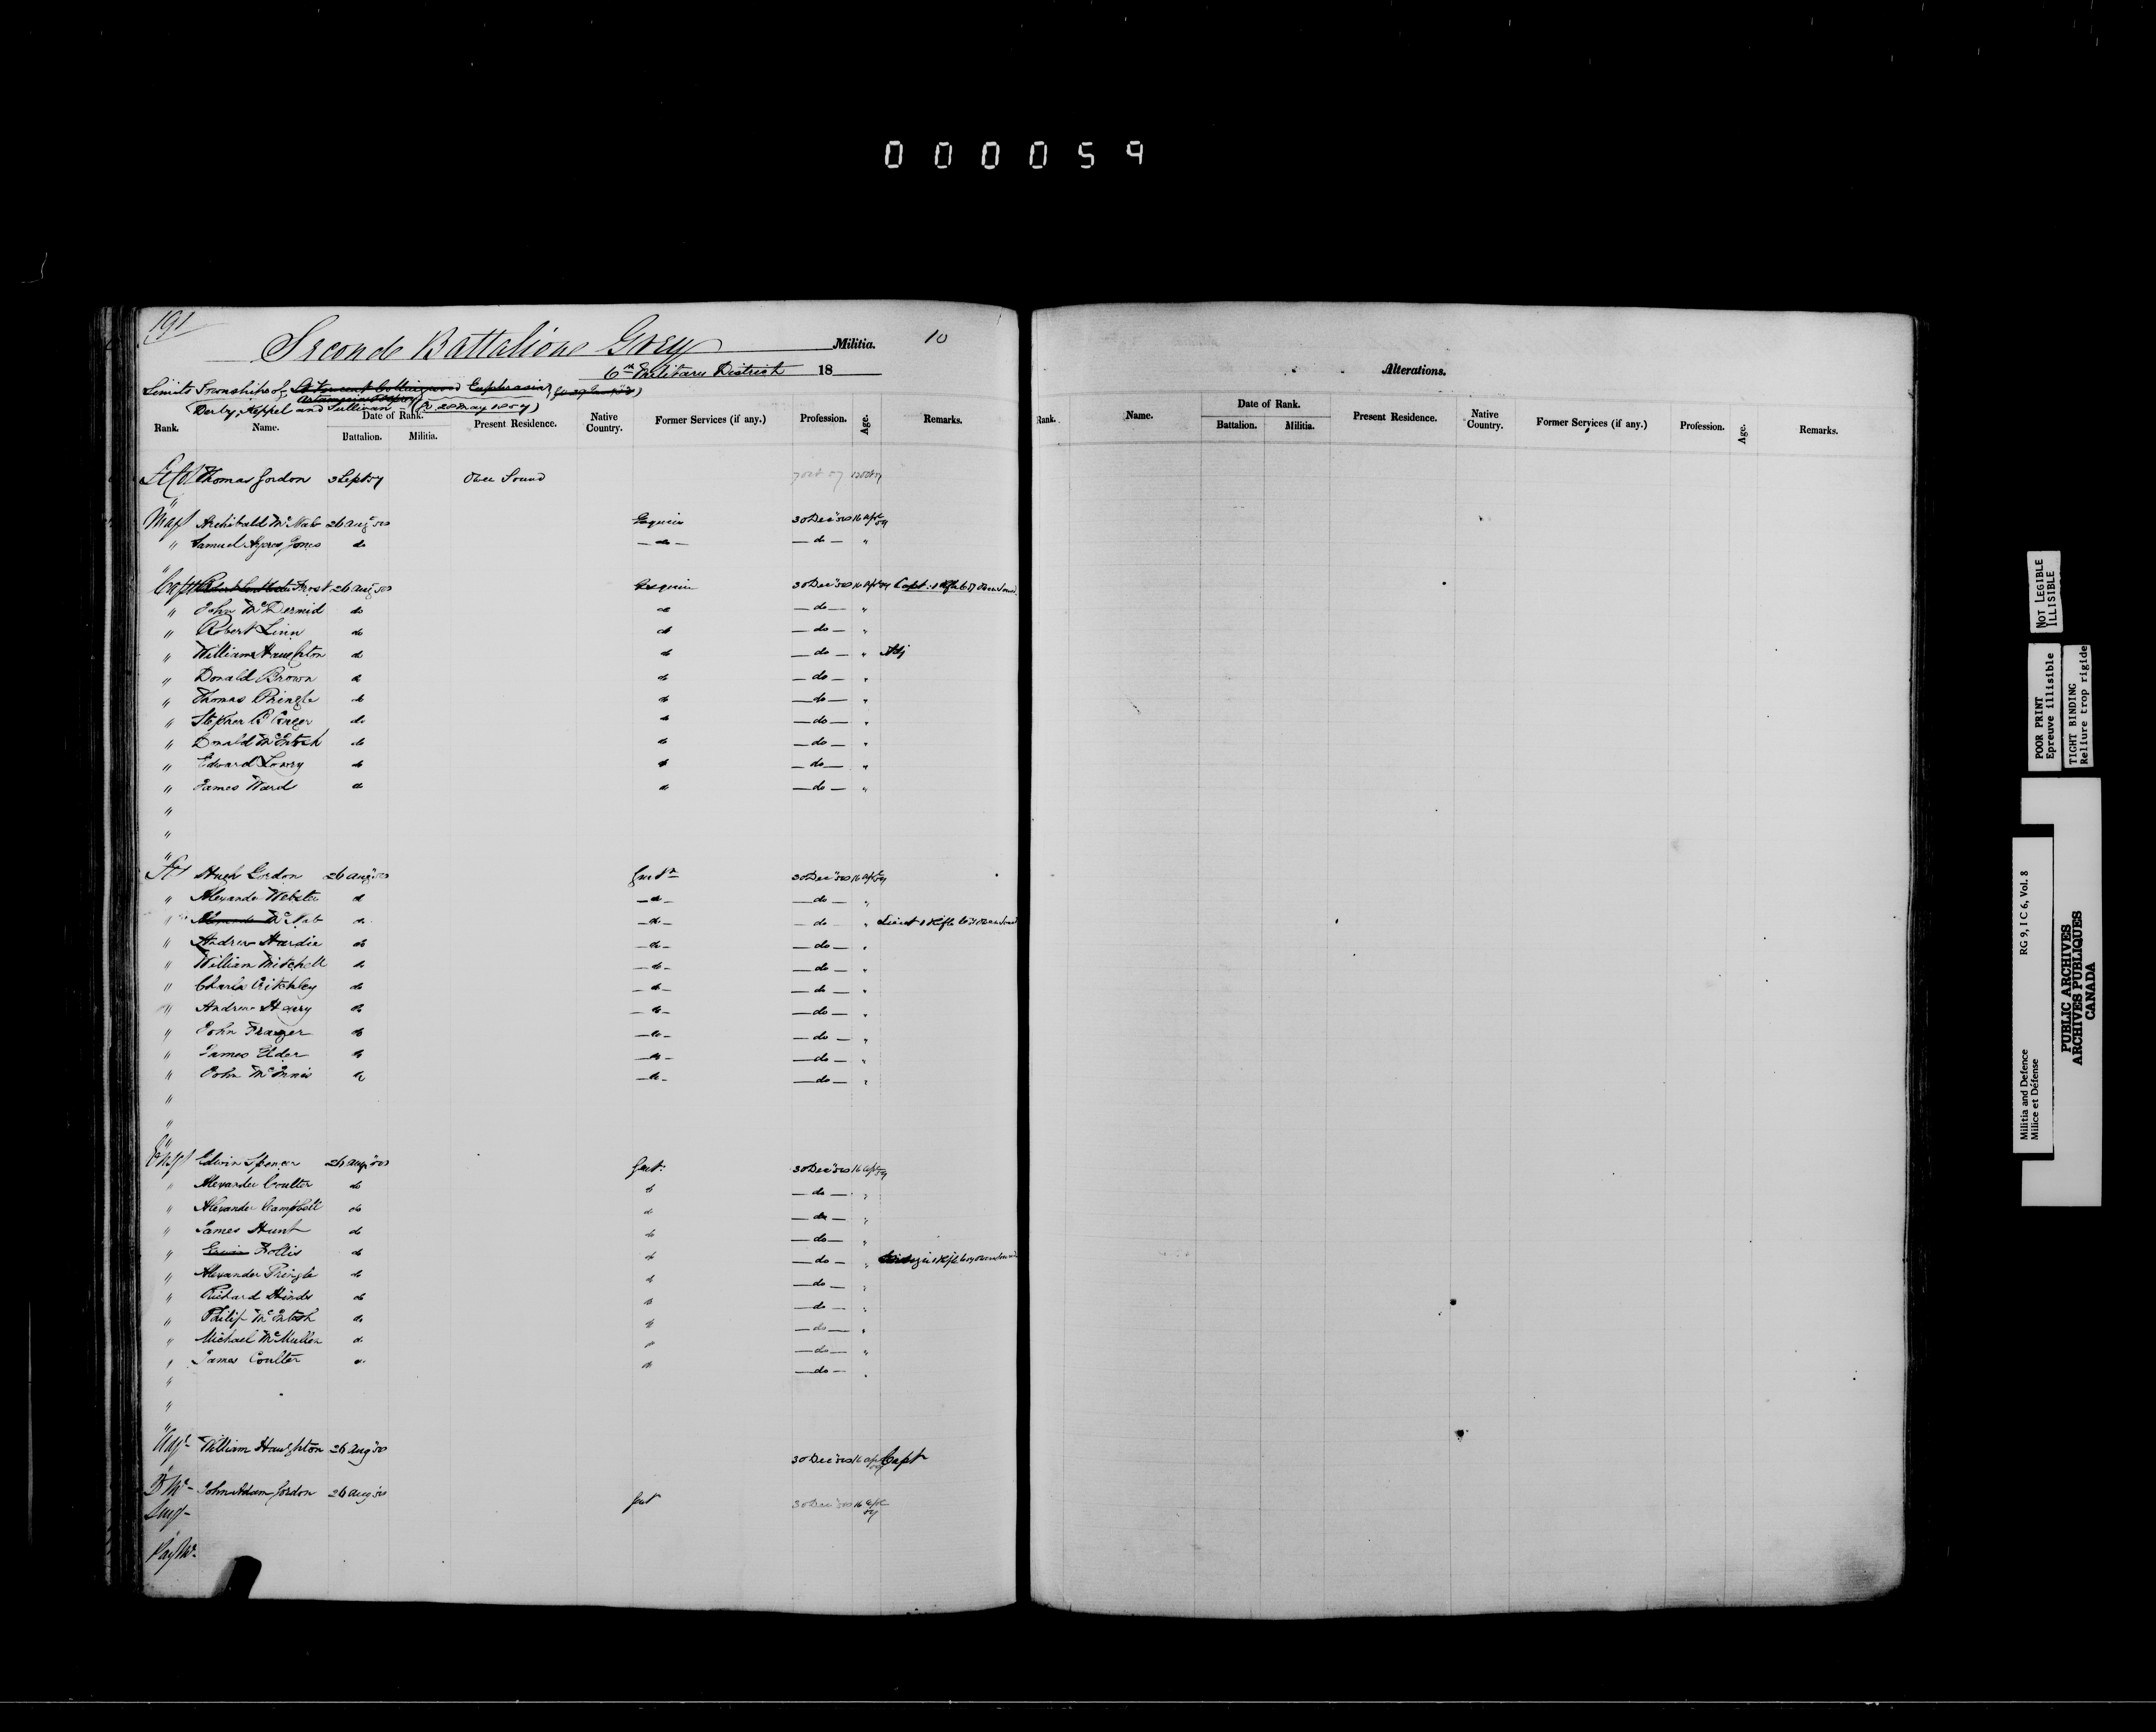 000059
191
Seconde Battalione Grey Militia. 10
6th Military District 18
Limits Townships of St Vincent Collingwood Euphrasia
Artemesia Osprey
Derby, Keppel and Sullivan - (20 May 1857)
Rank. Name. Date of Rank. Battalion. Militia. Present Residence. Native Country. Former Services (if any.) Profession. Age. Remarks.
Lt Col Thomas Gordon 3 Sept 57 Owen Sound 7 Oct 57
Maj Archibald McNab 26 Aug 50 Esquire 30 Dec 50 16 Apl 57
" Samuel Ayres Jones do — do — — do — "
Capt Frost 26 Aug 50 Esquire 30 Dec 50 16 Apl 57 Capt. 1 Rifle Coy Owen Sound
" John McDermid do do — do — "
" Robert Linn do do — do — "
" William Haughton do do — do — " Adj
" Donald Brown do do — do — "
" Thomas Pringle do do — do — "
" Stephen B do do — do — "
" Donald McIntosh do do — do — "
" Edward Lowry do do — do — "
" James Ward do do — do — "
"
"
"
Lt Hugh Gordon 26 Aug 50 Gent 30 Dec 50 16 Apl 57
" Alexander Webster do — do — — do — "
" Alexander McNab do — do — do " Lieut 1 Rifle Coy Owen Sound
" Andrew Hardie do — do — — do — "
" William Mitchell do — do — — do — "
" Charles Critchley do — do — — do — "
" Andrew Henry do — do — — do — "
" John Frazer do — do — — do — "
" James Elder do — do — — do — "
" John McInnis do — do — — do — "
"
"
"
Ens Edwin Spencer 26 Aug 50 Gent. 30 Dec 50 16 Apl 57
" Alexander Coulter do do — do — "
" Alexander Campbell do do — do — "
" James Hunt do do — do — "
" Follis do do — do — " Ensign 1 Rifle Coy Owen Sound
" Alexander Pringle do do — do — "
" Richard Hinds do do — do — "
" Philip McIntosh do " — do — "
" Michael McMullen do " — do — "
" James Coulter do " — do — "
"
"
"
Adjt William Haughton 26 Aug 50 30 Dec 50 16 Apl 57 Capt
Q Mr John Adam Gordon 26 Aug 50 Gent 30 Dec 50 16 Apl 57
Surg
Pay Mr.
Alterations.
Rank. Name. Date of Rank. Battalion. Militia. Present Residence. Native Country. Former Services (if any.) Profession. Age. Remarks.
NOT LEGIBLE
ILLISIBLE
POOR PRINT
Epreuve illisible
TIGHT BINDING
Reliure trop rigide
Militia and Defence RG 9, I C 6, Vol. 8
Milice et Défense
PUBLIC ARCHIVES
ARCHIVES PUBLIQUES
CANADA